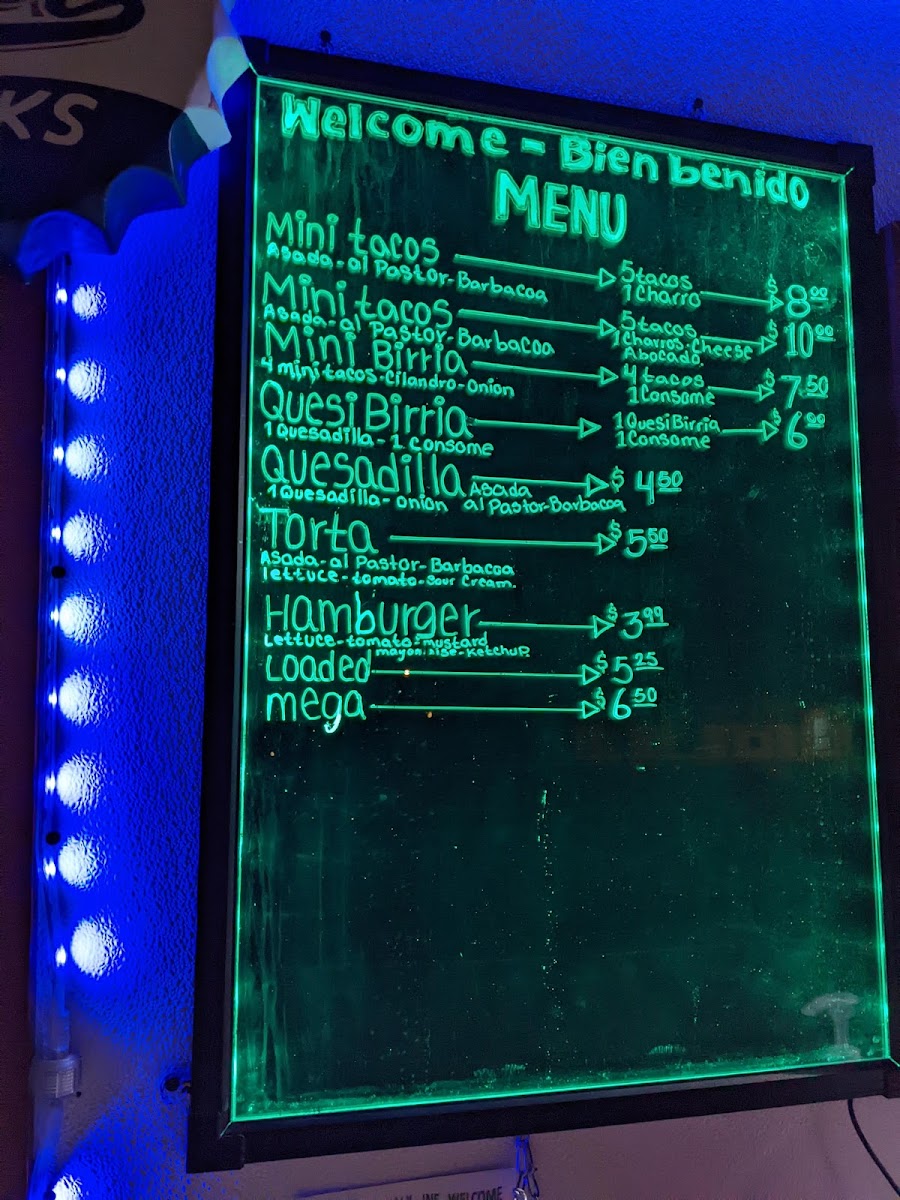 KS
Welcome - Bien benido
MENU
Mini tacos 5 tacos 1 Charro $8.00
Asada-al Pastor-Barbacoa
Mini tacos 5 tacos 1 Charros, Cheese Abocado $10.00
Asada-al Pastor-Barbacoa
Mini Birria 4 tacos 1 Consome $7.50
4 mini tacos-Cilandro-Onion
QuesiBirria 1 QuesiBirria 1 Consome $6.00
1 Quesadilla-1 Consome
Quesadilla Asada $4.50
1 Quesadilla-onion al Pastor-Barbacoa
Torta $5.50
Asada-al Pastor-Barbacoa
lettuce-tomato-sour Cream.
Hamburger $3.99
Lettuce-tomato-mustard
mayonaise-Ketchup
Loaded $5.25
mega $6.50
WELCOME